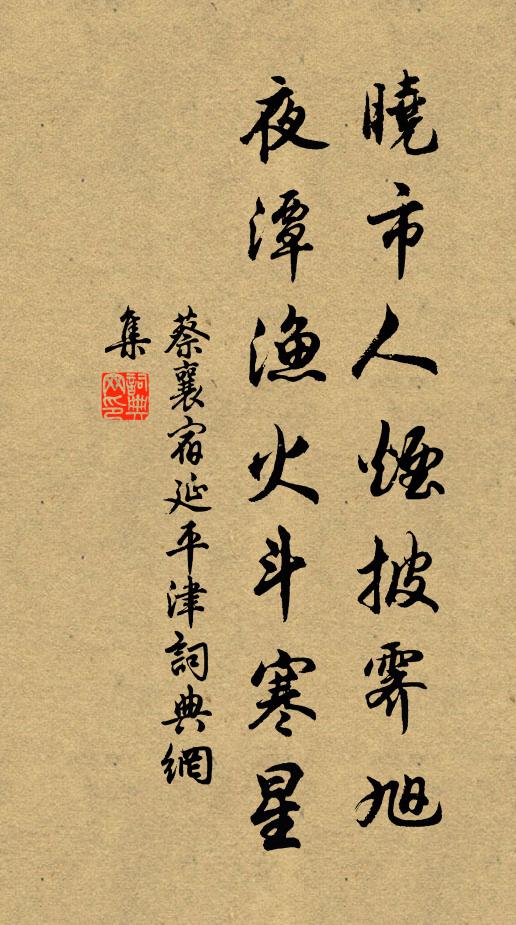 曉市人煙披霽旭
夜潭漁火斗寒星
蔡襄宿延平津詞典網
集
詞典網印